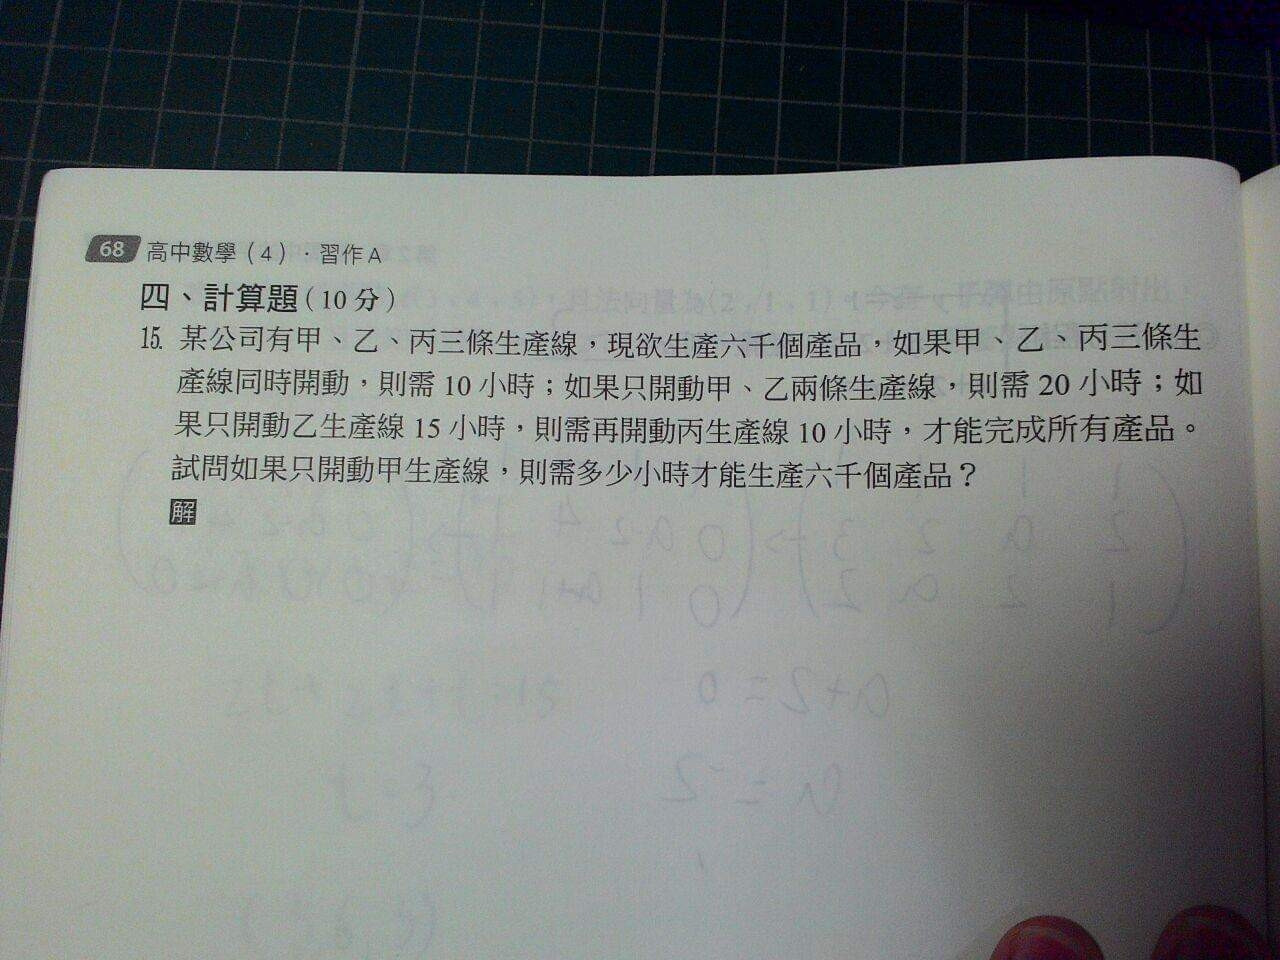 68 高中數學(4)．習作A
四、計算題(10分)
15. 某公司有甲、乙、丙三條生產線，現欲生產六千個產品，如果甲、乙、丙三條生
產線同時開動，則需10小時；如果只開動甲、乙兩條生產線，則需20小時；如
果只開動乙生產線15小時，則需再開動丙生產線10小時，才能完成所有產品。
試問如果只開動甲生產線，則需多少小時才能生產六千個產品？
解